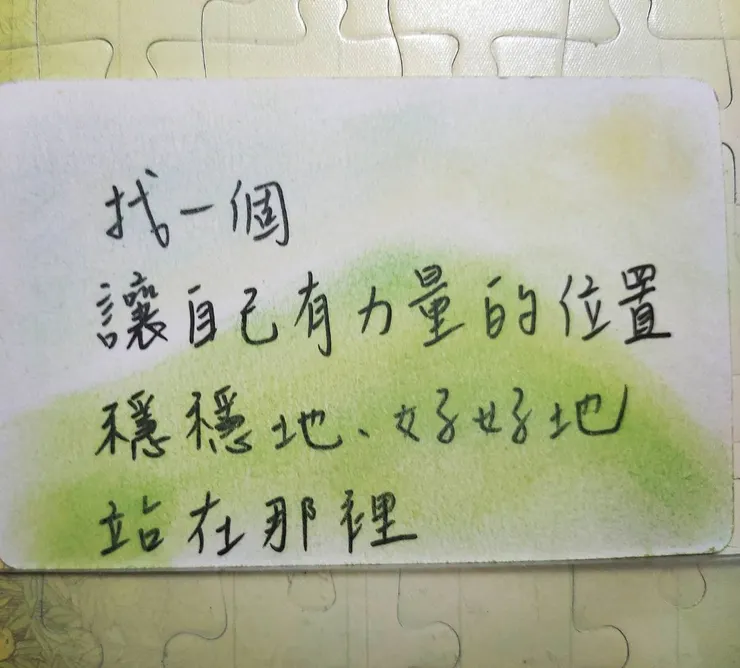 找一個
讓自己有力量的位置
穩穩地、好好地
站在那裡